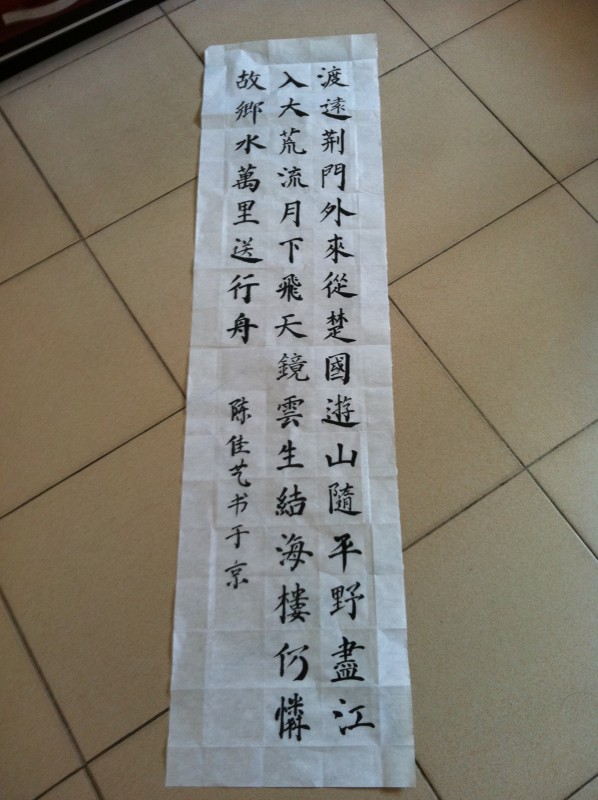 渡遠荆門外來從楚國遊山隨平野盡江
入大荒流月下飛天鏡雲生結海樓仍憐
故鄉水萬里送行舟
陈佳艺书于京